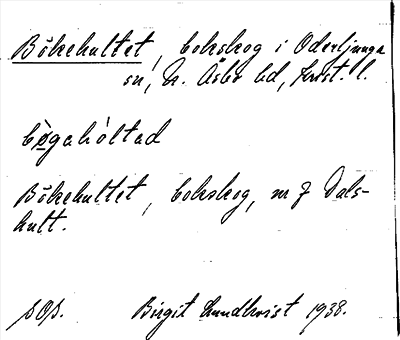 Bökehultet, bokskog i Oderljunga
sn, N. Åsbo hd, Krist. l.
bø̀gahòltad
Bökehultet, bokskog, nr 7 Dals-
hult.
SOS. Birgit Lundkvist 1938.